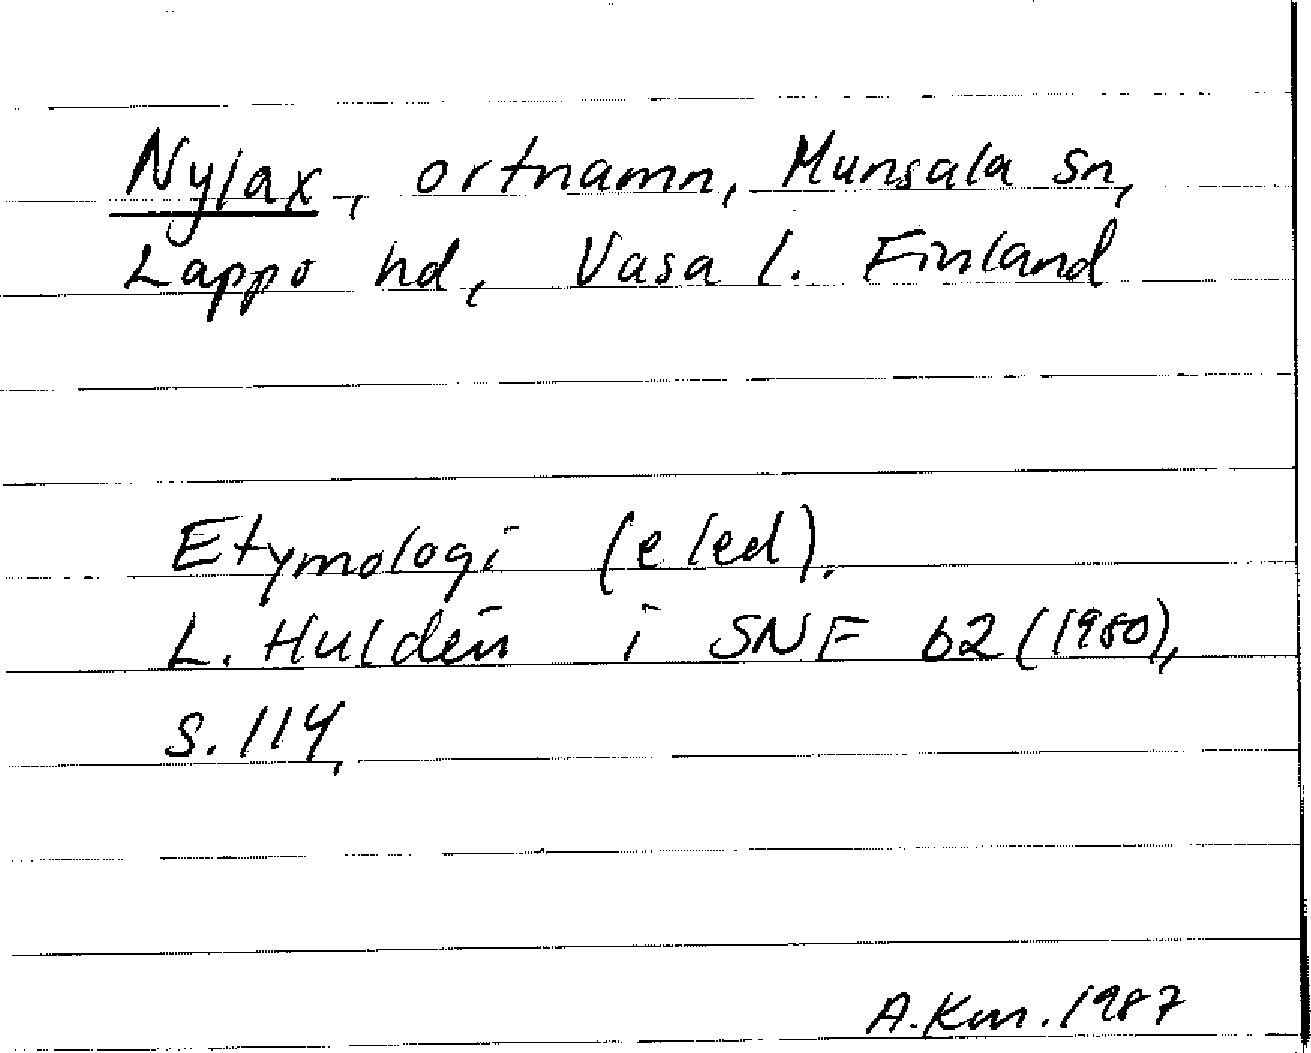 Nylax, ortnamn, Munsala sn,
Lappo hd, Vasa l. Finland
Etymologi (e led).
L. Huldén i SNF 62 (1980),
s. 114.
A. Km. 1987